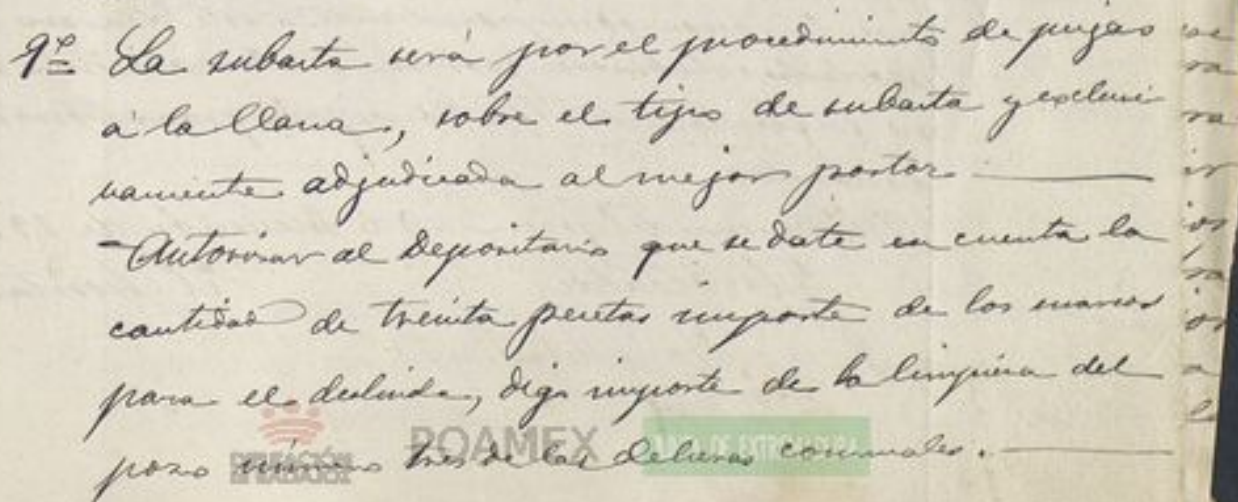 9º La subasta será por el procedimiento de pujas
á la llana, sobre el tipo de subasta y exclusi
vamente adjudicada al mejor postor.
- Autorizar al Depositario que se date en cuenta la
cantidad de treinta pesetas importe de los marcos
para el deslinde, digo importe de la limpieza del
pozo número tres de las dehesas comunales.
DIPUTACIÓN DE BADAJOZ
ROAMEX
JUNTA DE EXTREMADURA